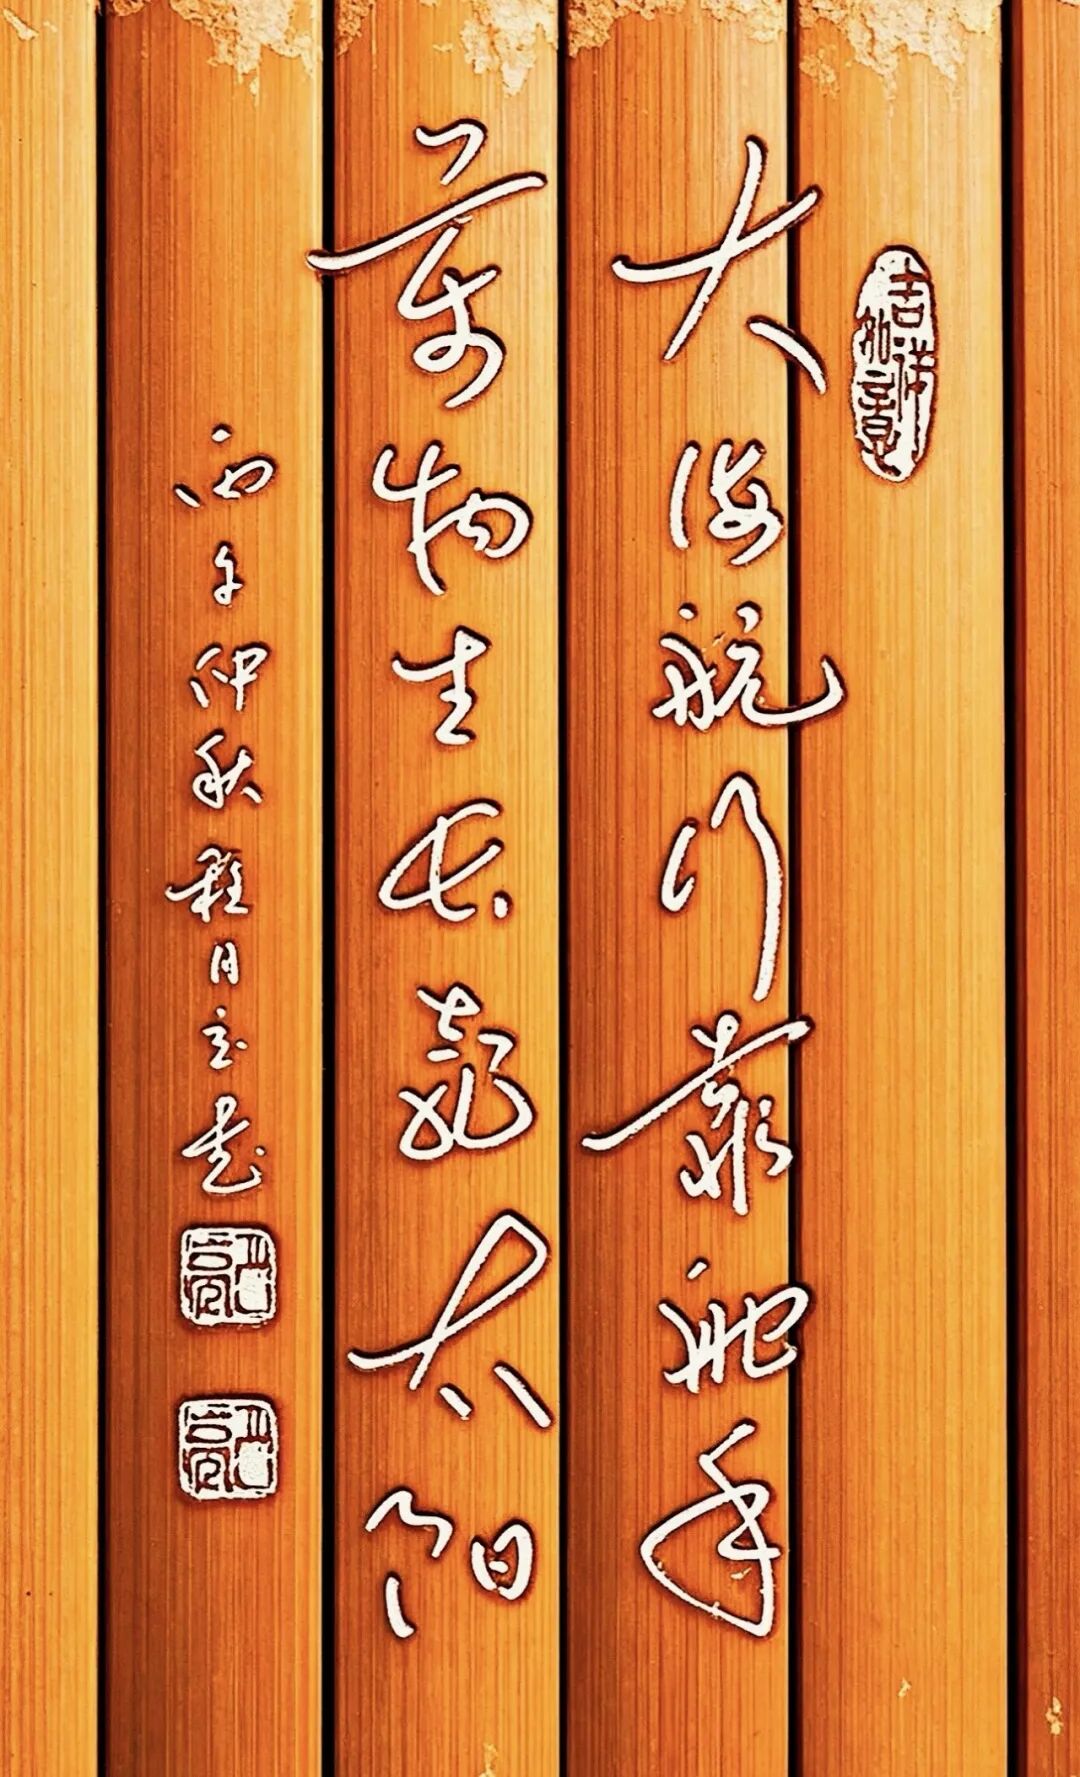 吉祥如意
大海航行靠舵手
萬物生长靠太阳
丙午仲秋程月书